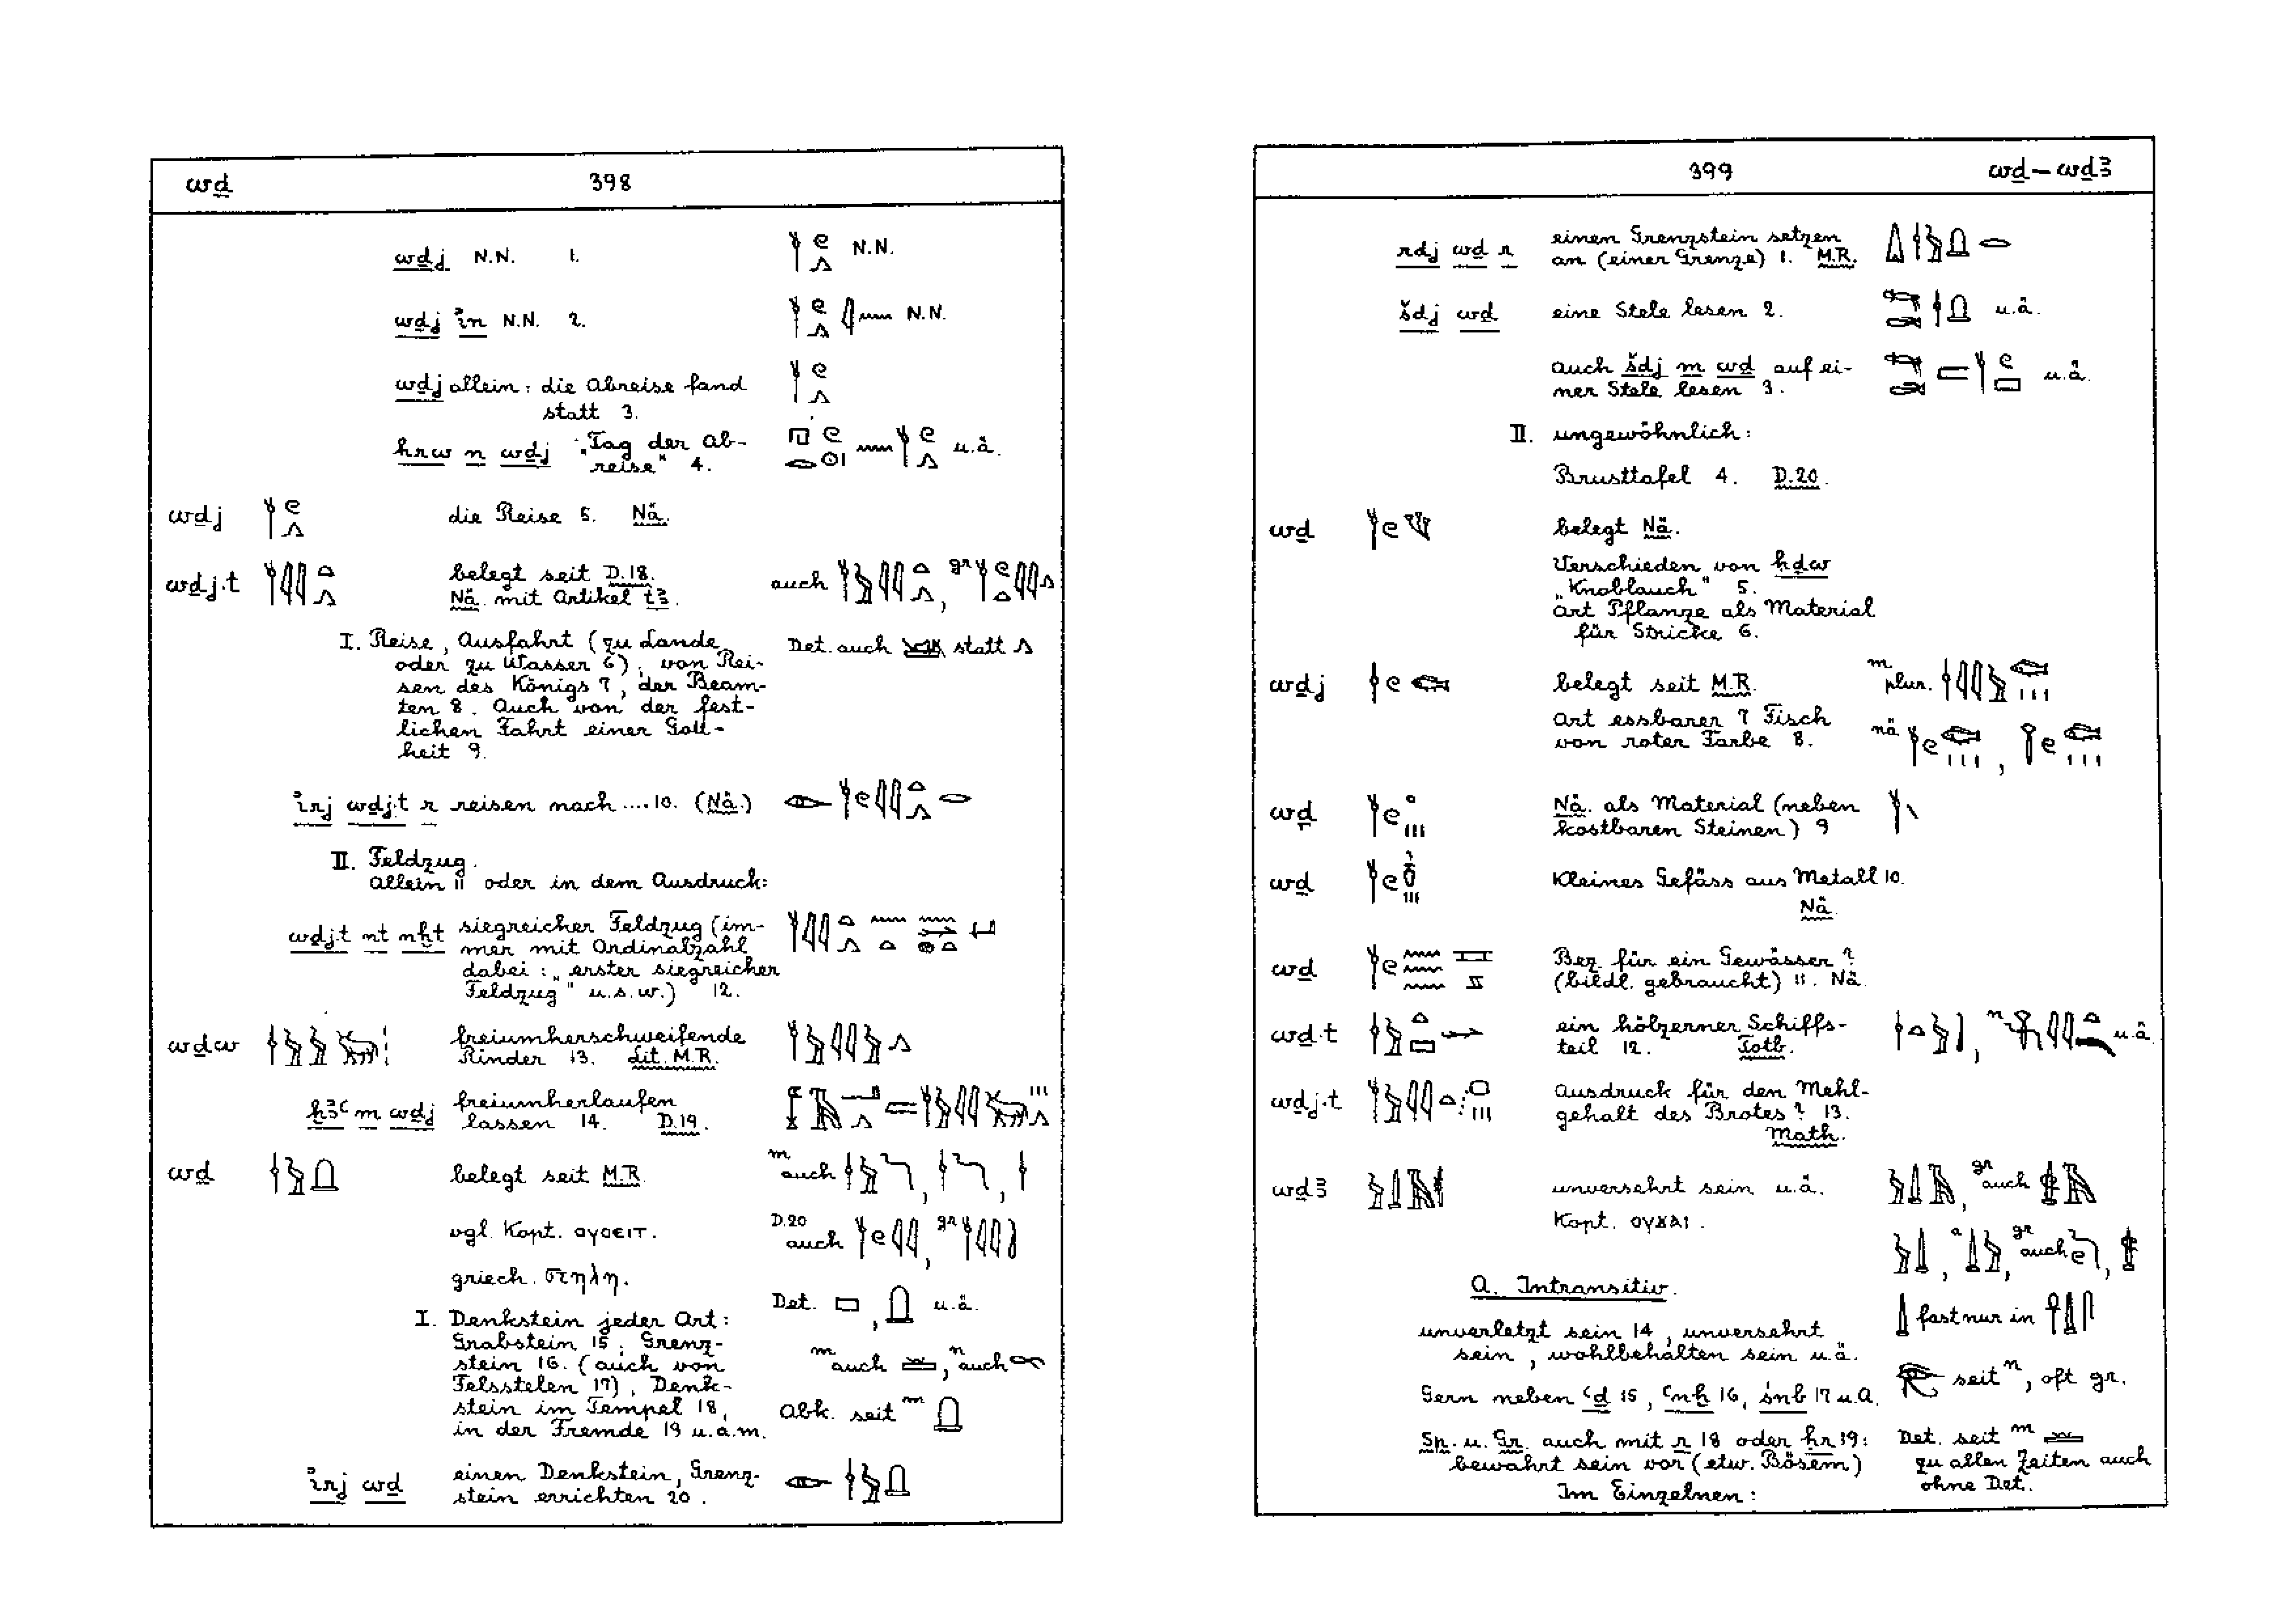 wḏ 398
wḏj N.N. 1. N.N.
wḏj in N.N. 2. N.N.
wḏj allein: die Abreise fand
statt 3.
hrw n wḏj „Tag der Ab-
reise“ 4. u.ä.
wḏj die Reise 5. Nä.
wḏj.t belegt seit D.18. auch , gr
Nä. mit Artikel tꜣ.
I. Reise, Ausfahrt (zu Lande Det. auch statt
oder zu Wasser 6), von Rei-
sen des Königs 7, der Beam-
ten 8. Auch von der fest-
lichen Fahrt einer Gott-
heit 9.
irj wḏj.t r reisen nach .... 10. (Nä.)
II. Feldzug.
allein 11 oder in dem Ausdruck:
wḏj.t nt nḫt siegreicher Feldzug (im-
mer mit Ordinalzahl
dabei: „erster siegreicher
Feldzug“ u.s.w.) 12.
wḏw freiumherschweifende
Rinder 13. Lit. M.R.
ḫꜣꜥ m wḏj freiumherlaufen
lassen 14. D.19.
wḏ belegt seit M.R. m auch , ,
vgl. Kopt. ⲟⲩⲟⲉⲓⲧ. D.20 auch , gr
griech. στήλη.
Det. , u.ä.
I. Denkstein jeder Art:
Grabstein 15, Grenz-
stein 16. (auch von m auch , n auch
Felsstelen 17), Denk-
stein im Tempel 18, Abk. seit m
in der Fremde 19 u.a.m.
irj wḏ einen Denkstein, Grenz-
stein errichten 20.
399 wḏ – wḏꜣ
rdj wḏ r einen Grenzstein setzen
an (einer Grenze) 1. M.R.
šdj wḏ eine Stele lesen 2. u.ä.
auch šdj m wḏ auf ei-
ner Stele lesen 3. u.ä.
II. ungewöhnlich:
Brusttafel 4. D.20.
wḏ belegt Nä.
Verschieden von ḥḏw
„Knoblauch“ 5.
Art Pflanze als Material
für Stricke 6.
wḏj belegt seit M.R. m plur.
Art essbarer 7 Fisch
von roter Farbe 8. nä ,
wḏ Nä. als Material (neben
kostbaren Steinen) 9
wḏ Kleines Gefäss aus Metall 10.
Nä.
wḏ Bez. für ein Gewässer?
(bildl. gebraucht) 11. Nä.
wḏ.t ein hölzerner Schiffs-
teil 12. Totb. , n u.ä.
wḏj.t Ausdruck für den Mehl-
gehalt des Brotes? 13.
Math.
wḏꜣ unversehrt sein u.ä. , gr auch
Kopt. ⲟⲩϫⲁⲓ.
, a , gr auch ,
A. Intransitiv.
fast nur in
unverletzt sein 14, unversehrt
sein, wohlbehalten sein u.ä.
seit n, oft gr.
Gern neben ꜥḏ 15, ꜥnḫ 16, śnb 17 u.a.
Sp. u. Gr. auch mit r 18 oder ḥr 19: Det. seit m
bewahrt sein vor (etw. Bösem) zu allen Zeiten auch
ohne Det.
Im Einzelnen: